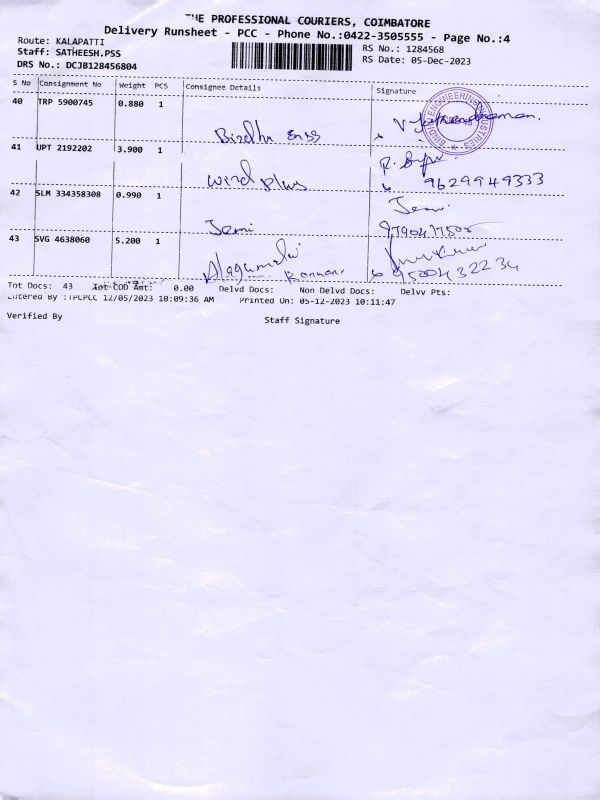 THE PROFESSIONAL COURIERS, COIMBATORE
Delivery Runsheet - PCC - Phone No.:0422-3505555 - Page No.:4
Route: KALAPATTI
RS No.: 1284568
Staff: SATHEESH.PSS
RS Date: 05-Dec-2023
DRS No.: DCJB128456804
S No Consignment No Weight PCS Consignee Details Signature
40 TRP 5900745 0.880 1
BIRDHU ENGINEERING INDUSTRIES
Birdhu Engg
41 UPT 2192202 3.900 1
Wind Plus 9629949333
42 SLM 334358308 0.990 1
Jemi Jemi
9790417505
43 SVG 4638060 5.200 1
Alagumalai Kannan 9500432234
Tot Docs: 43 Tot COD Amt: 0.00 Delvd Docs: Non Delvd Docs: Delvv Pts:
Entered By :TPCPCC 12/05/2023 10:09:36 AM Printed On: 05-12-2023 10:11:47
Verified By Staff Signature